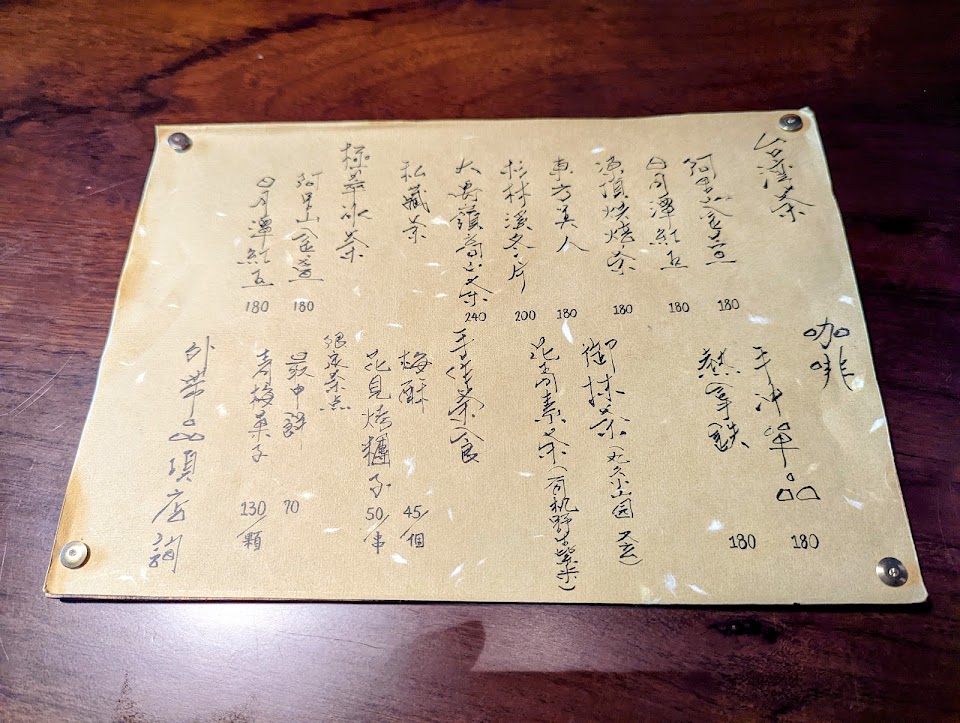 台灣茶
阿里山金萱 180
日月潭紅玉 180
凍頂烘焙茶 180
東方美人 180
杉林溪冬片 200
大禹嶺高山茶 240
私藏茶
極萃冰茶
阿里山金萱 180
日月潭紅玉 180
咖啡
手沖單品 180
熱拿鐵 180
御抹茶(丸久小山园 又玄)
素茶(有机野生紫米)
手作茶食
梅酥 45/個
花見烤糰子 50/串
限定茶点
最中餅 70
青梅菓子 130/顆
外帶品項店詢